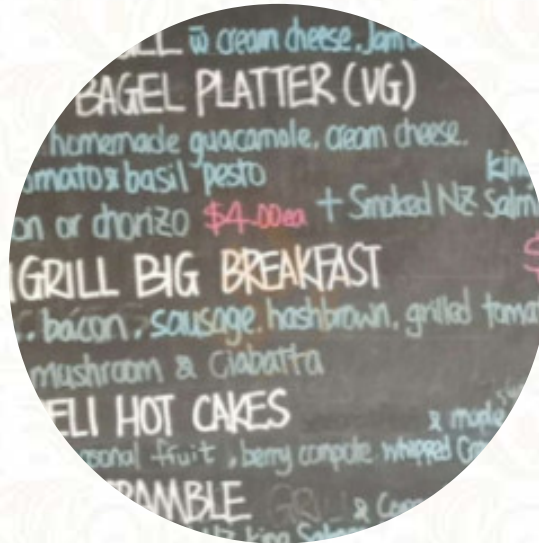 w cream cheese. Jam
BAGEL PLATTER (VG)
homemade guacamole. cream cheese.
omato & basil pesto
on or chorizo $4.00ea + Smoked NZ Salm
GRILL BIG BREAKFAST
bacon, sausage, hashbrown, grilled toma
mushroom & ciabatta
ELI HOT CAKES
& maple
sonal fruit, berry compote. whipped Cr
RAMBLE
& Co
king Salm